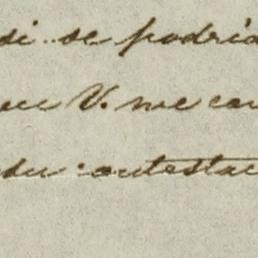 si se podría
que V. me con
su contestac